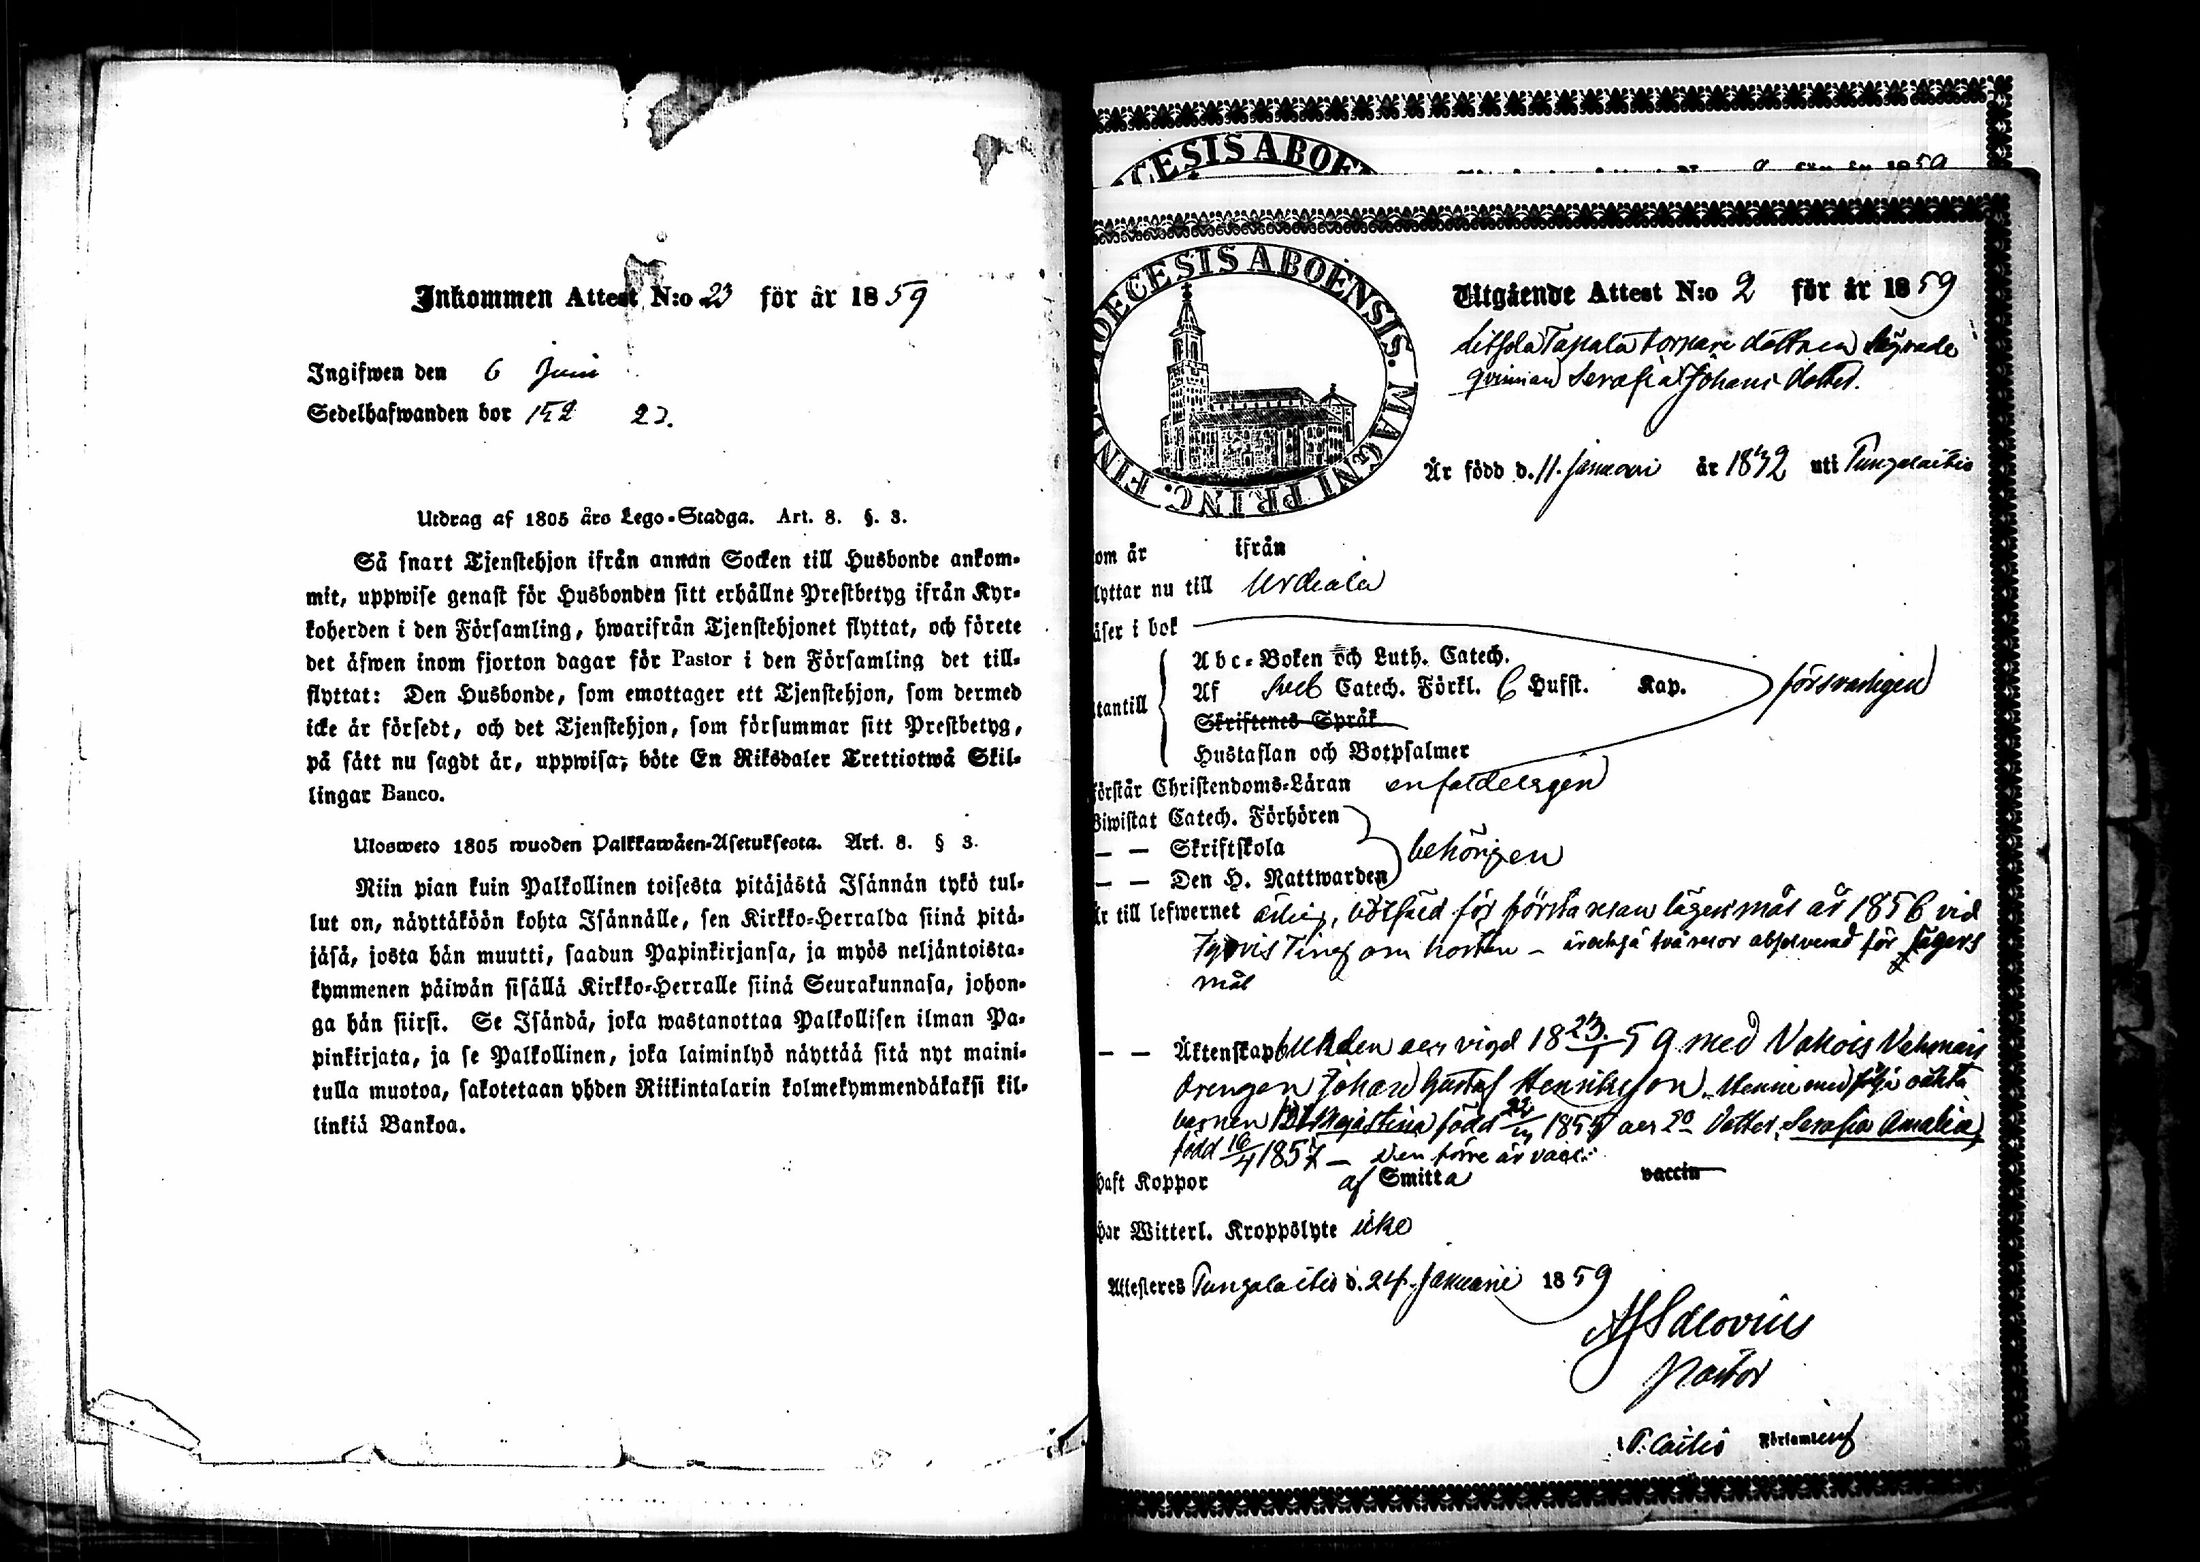 Inkommen Attest N:o 23 för år 1859
Ingifwen den 6 Juni
Sedelhafwanden bor 152 23.
Utdrag af 1805 års Lego-Stadga. Art. 8. §. 3.
Så snart Tjenstehjon ifrån annan Socken till Husbonde ankom-
mit, uppwise genast för Husbonden sitt erhållne Prestbetyg ifrån Kyr-
koherden i den Församling, hwarifrån Tjenstehjonet flyttat, och förete
det äfwen inom fjorton dagar för Pastor i den Församling det till-
flyttat: Den Husbonde, som emottager ett Tjenstehjon, som dermed
icke är försedt, och det Tjenstehjon, som försummar sitt Prestbetyg,
på sätt nu sagdt är, uppwisa, böte En Riksdaler Trettiotwå Skil-
lingar Banco.
Ulosweto 1805 wuoden Palkkawäen-Asetuksesta. Art. 8. § 3.
Niin pian kuin Palkollinen toisesta pitäjästä Isännän tykö tul-
lut on, näyttäköön kohta Isännälle, sen Kirkko-Herralda siinä pitä-
jäsä, josta hän muutti, saadun Papinkirjansa, ja myös neljäntoista-
kymmenen päiwän sisällä Kirkko-Herralle siinä Seurakunnasa, johon-
ga hän siirsi. Se Isändä, joka wastanottaa Palkollisen ilman Pa-
pinkirjata, ja se Palkollinen, joka laiminlyö näyttää sitä nyt maini-
tulla muotoa, sakotetaan yhden Riikintalarin kolmekymmendäkaksi kil-
linkiä Bankoa.
ECESIS ABOE
59
DIOECESIS ABOENSIS. MAGNI PRINC. FINL
Utgående Attest N:o 2 för år 1859
Tapala torpare dottren lägrade
qvinnan Serafia Johans dotter.
Är född d. 11. Januari år 1832 uti Pungalaitio
om år ifrån
lyttar nu till Urdiala
äser i bok
Abc-Boken och Luth. Catech.
tantill Af Sveb Catech. Förkl. 6 Hufst. Kap. försvarligen
Skriftenes Språk
Hustaflan och Botpsalmer
örstår Christendoms-Läran enfaldeligen
Biwistat Catech. Förhören
— — Skriftskola behörigen
— — Den H. Nattwarden
är till lefwernet ärlig, bötfäld för första resan lägersmål år 1856 vid
Tyrvis Ting om hösten – är också två resor absolverad för lägers
mål
— — Äktenskap bunden och vigd 18 23/1 59 med Vahois Vehmais
drengen Johan Gustaf Henriksson. Henne medfölja oäkta
barnen född 1855 och 2o Dotter Serafia Amalia,
född 16/4 1857 – den förre är vacc:
haft Koppor af Smitta vaccin
har Witterl. Kroppslyte icke
Attesteres Pungalaitio d. 24. Januarii 1859
Pastor
i P.laitio Församling